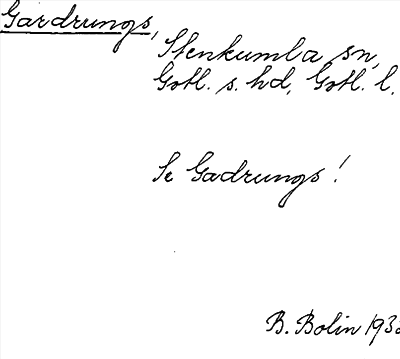 Gardrungs,
Stenkumla sn,
Gotl. s. hd, Gotl. l.
Se Gadrungs!
B. Bolin